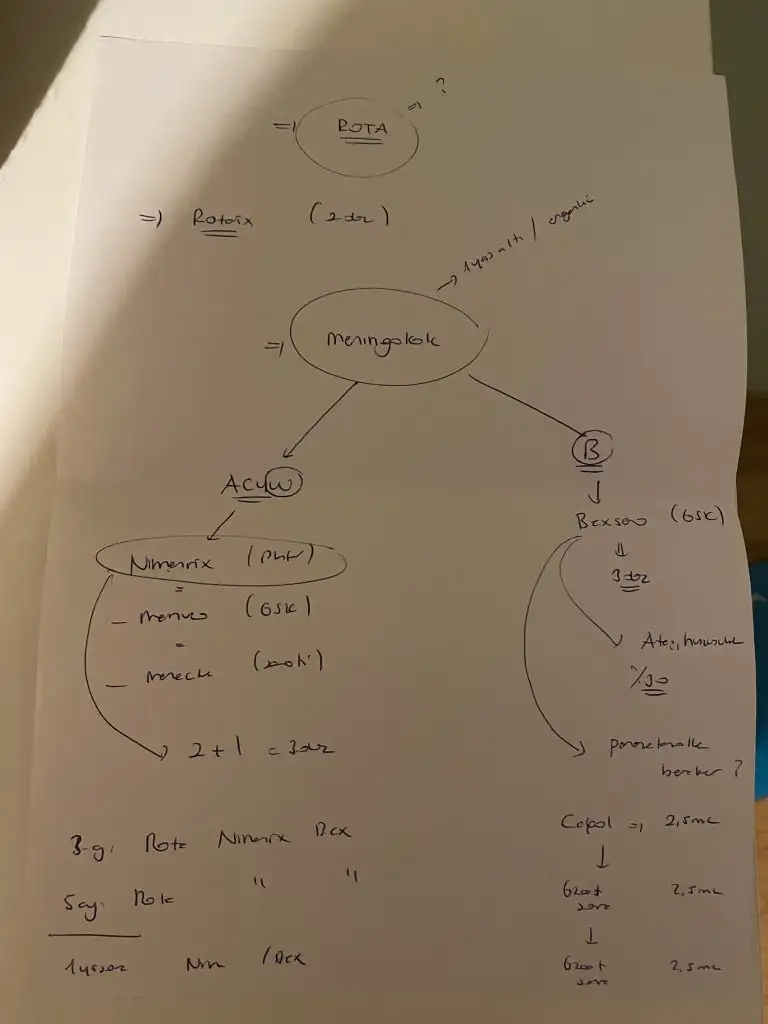 =) ROTA =) ?
=) Rotarix (2 doz)
1 yaş altı /
=) meningokok
ACYW
B
Nimenrix
Bexsero (GSK)
3 doz
– menveo (GSK)
Ateş,
– menactra
%30
2 + 1 = 3 doz
parasetamolle
beraber ?
3. ay: Rota Nimenrix Bex
Calpol =) 2,5 mL
5. ay: Rota " "
6 saat sonra 2,5 mL
1 yaşında Nim / Bex
6 saat sonra 2,5 mL